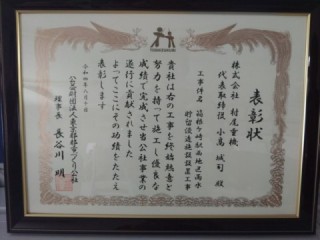 表彰状
株式会社 村尾重機
代表取締役 小島 城司 殿
工事件名 箱根ケ崎駅西地区雨水
貯留浸透施設設置工事
貴社は右の工事を終始熱意と
努力を持って施工し優良な
成績で完成させ当公社事業の
遂行に貢献されました
よってここにその功績をたたえ
表彰します
令和四年六月十日
公益財団法人東京都都市づくり公社
理事長 長谷川 明